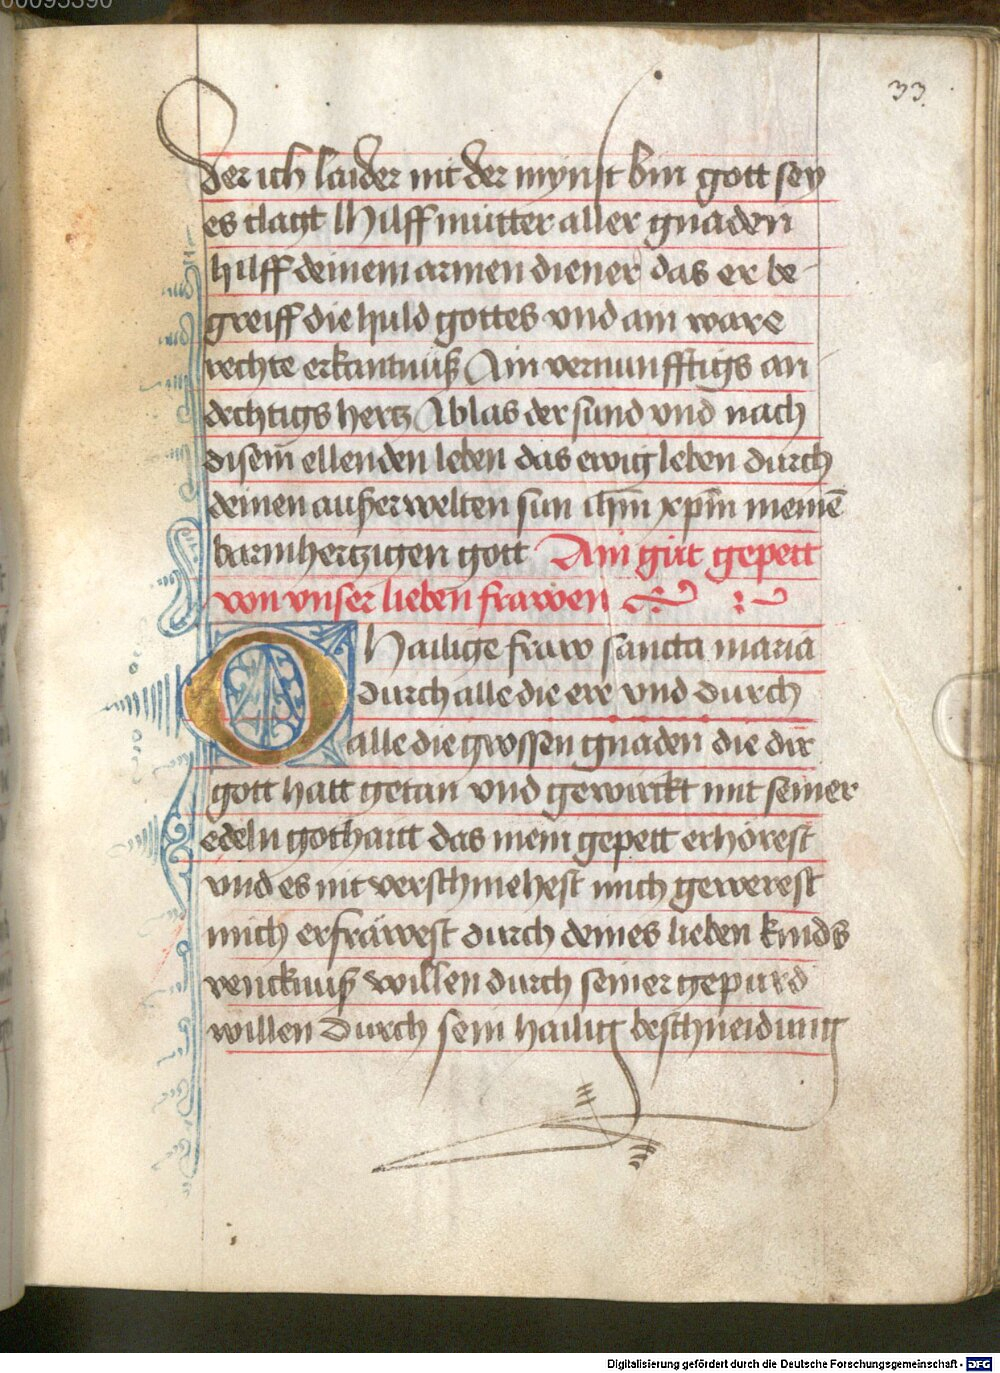 00095390
33
Der ich laider nit der mynst bin gott sey
es clagt Hilff mutter aller gnaden
hilff deinem armen diener das er be-
greiff die huld gottes vnd ain ware
rechte erkantnuß Ain vernunfftigs an
dechtigs hertz Ablas der sund vnd nach
disem ellenden leben das ewig leben durch
deinen außerwelten sun ihm̄ xpm̄ meinē
barmhertzigen gott Ain gut gepett
von vnser lieben frawen
O Hailige fraw sancta maria
durch alle die ere vnd durch
alle die grossen gnaden die dir
gott hatt getan vnd gewirckt mit seiner
edeln gothaitt das mein gepett erhörest
vnd es nit verschmehest mich gewerest
mich erfräwest durch deines lieben kinds
vencknuß willen durch seiner gepurd
willen Durch sein hailig beschneidung
Digitalisierung gefördert durch die Deutsche Forschungsgemeinschaft - DFG